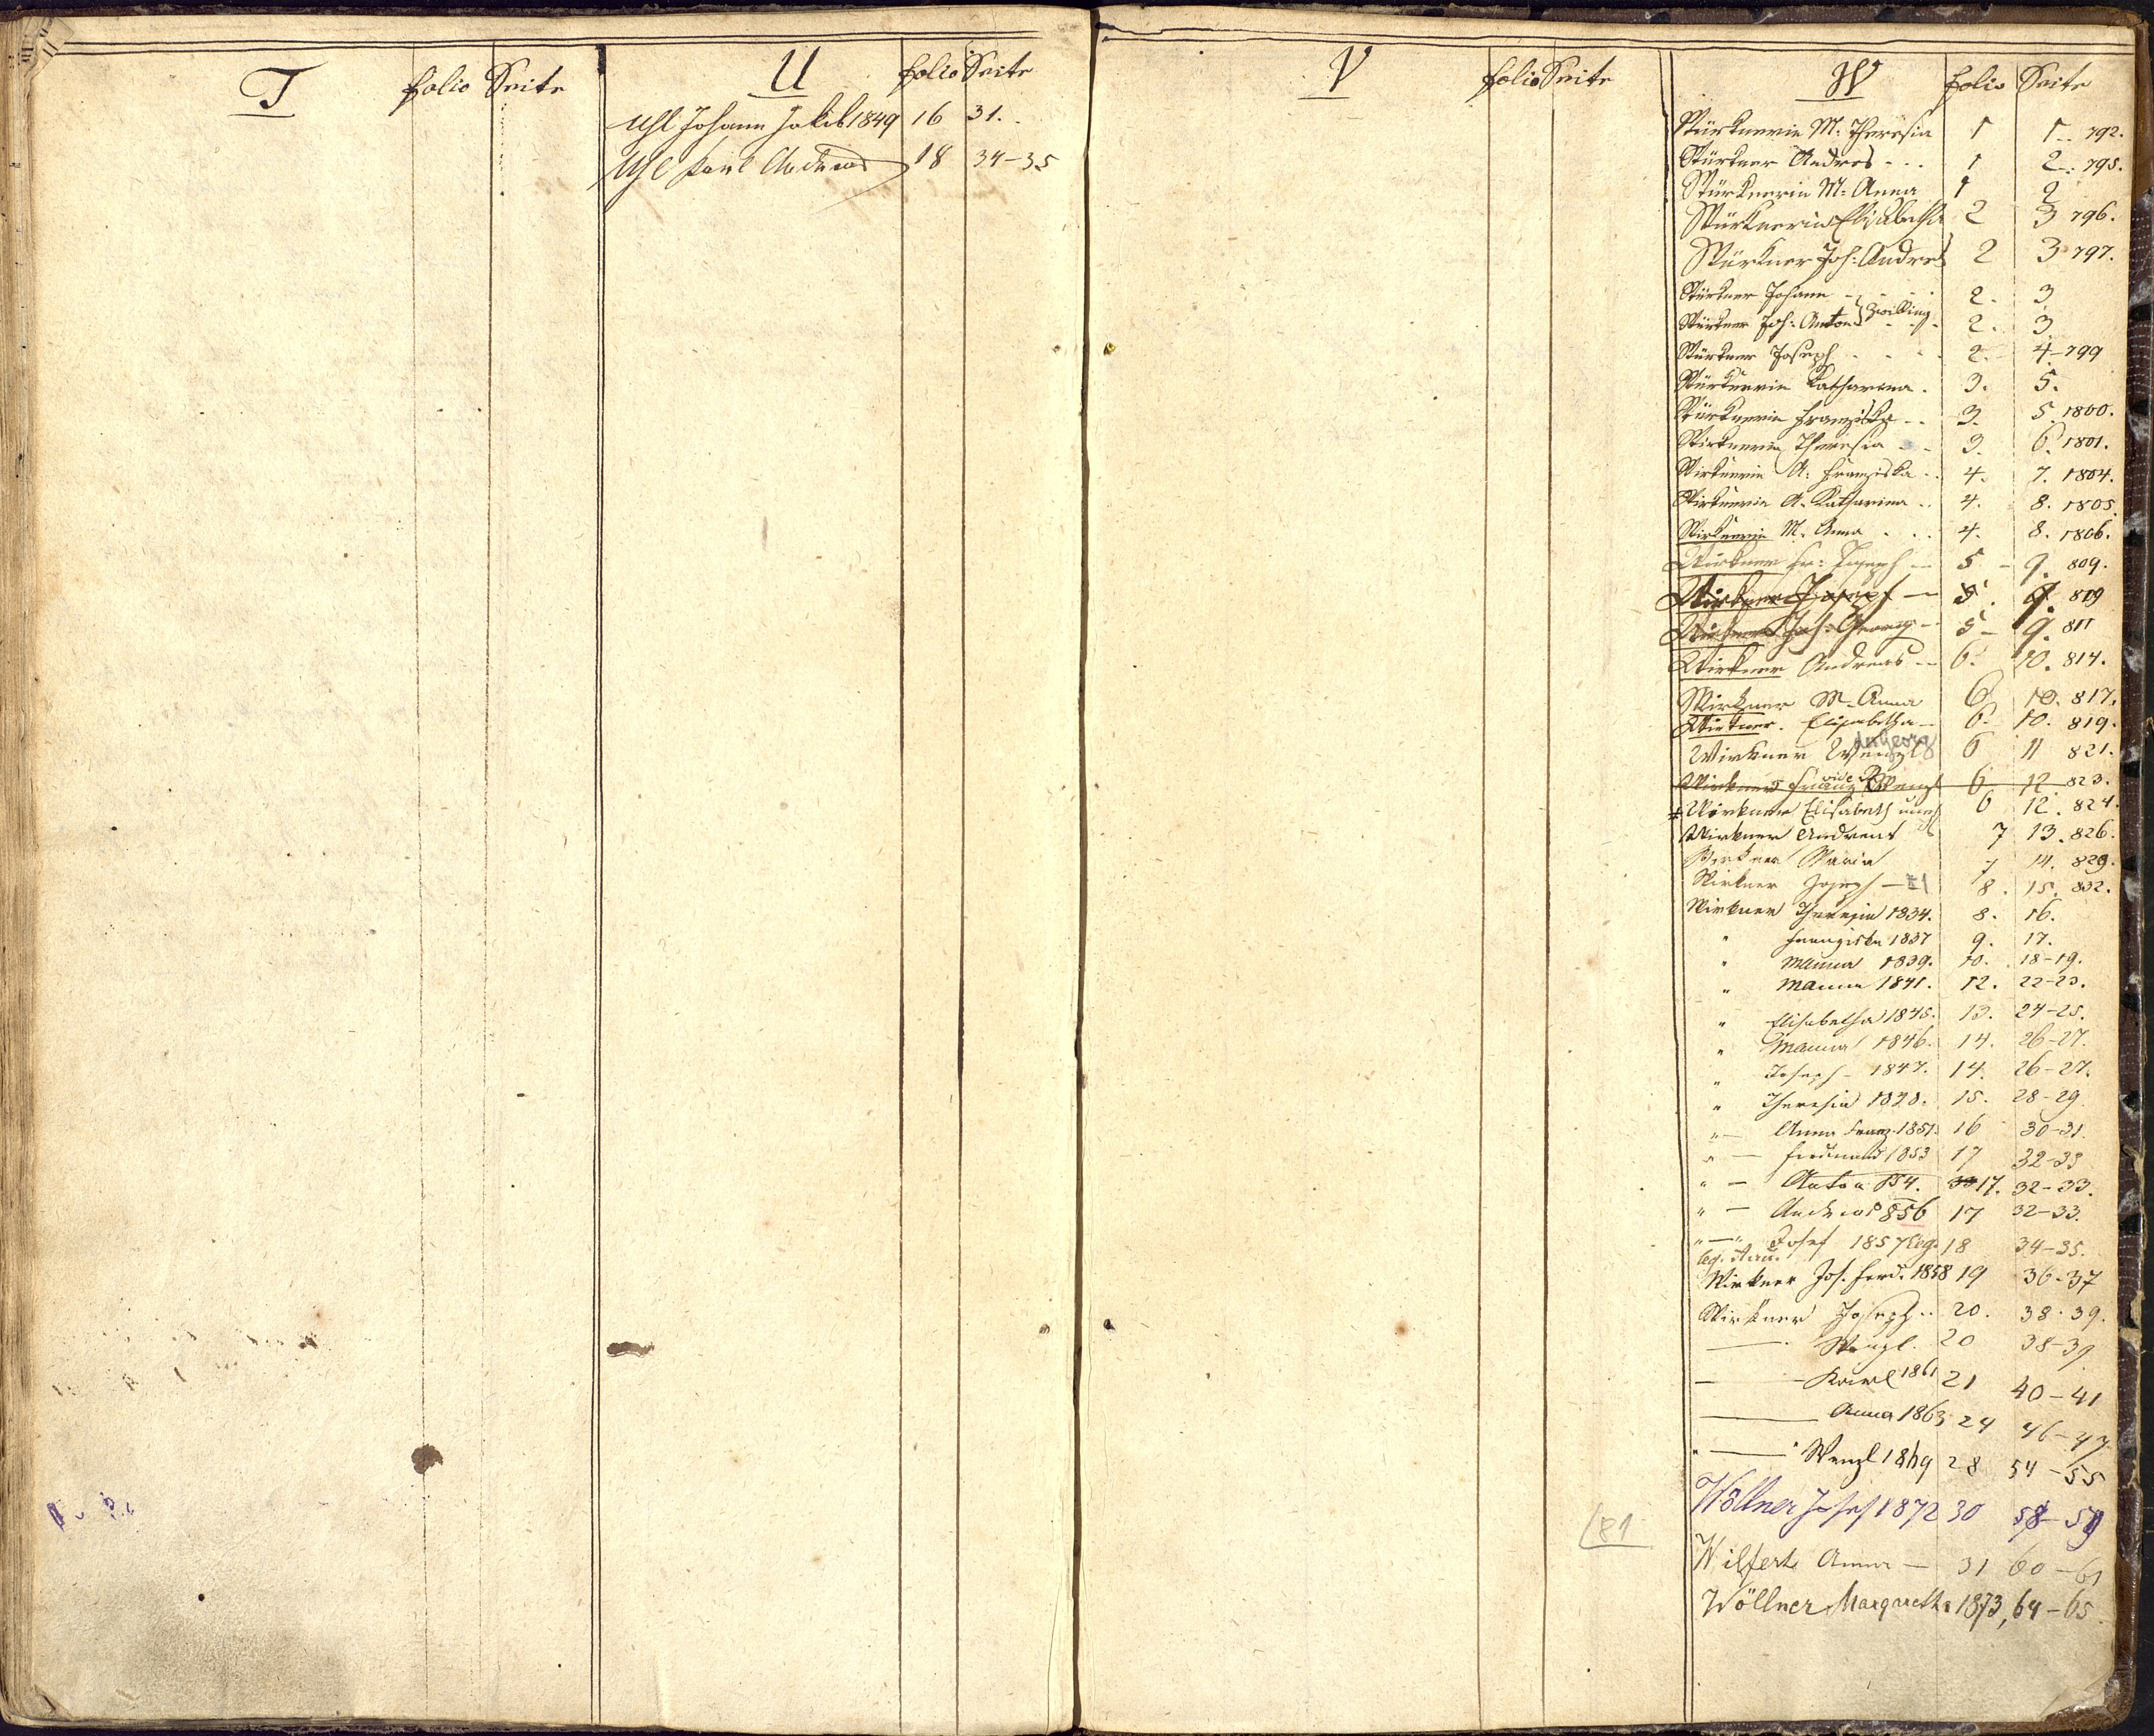 T folio Seite
U folio Seite
Uhl Johann Jakob 1849 16 31.
Uhl Karl Andreas 18 34-35
V folio Seite
W folio Seite
Würknerin M: Theresia 1 1. 792.
Würkner Andres 1 2. 795.
Würknerin M: Anna 1 2
Würknerin Elisabetha 2 3 796.
Würkner Joh: Andres 2 3 797.
Würkner Johann 2. 3
Zwilling
Würkner Joh: Anton 2. 3
Würkner Joseph 2. 4-799
Würknerin Katharina. 3. 5.
Würknerin Franziska 3. 5. 1800.
Wirknerin Theresia 3. 6. 1801.
Wirknerin A: Franziska 4. 7. 1804.
Wirknerin A. Katharina 4. 8. 1805.
Wirknerin M. Anna 4. 8. 1806.
Wirkner Fr: Joseph 5 - 9. 809.
Wirkner Joseph 5. 9. 809
Wirkner Joh: Georg 5 - 9. 811
Wirkner Andreas 6. 10. 814.
Wirkner M. Anna 6 10. 817.
Wirkner. Elisabetha 6. 10. 819.
Georg
Wirkner Wenzl 6 11 821.
vide
Wirkner Franz Wenzl 6 12 823.
Wirkner Elisabeth 6 12. 824.
Wirkner Andreas 7 13. 826.
Wirkner Maria 7 14. 829.
Wirkner Joseph 8. 15. 832.
Wirkner Theresia 1834. 8. 16.
" Franziska 1837 9. 17.
" Manna 1839. 10. 18-19.
" Manna 1841. 12. 22-23.
" Elisabetha 1845. 13. 24-25.
" Manna 1846. 14. 26-27.
" Joseph 1847. 14. 26-27.
" Theresia 15. 28-29
" Anna Franz. 1851. 16 30-31.
" Ferdinand 1853 17 32-33
" Anton 17. 32-33.
" Andreas 856 17 32-33.
" Josef 1857 leg. 18 34-35.
leg.
Wirkner Jos. Ferd. 1858 19 36-37
Wirkner Joseph 20. 38-39.
Wenzl. 20 38-39
Karl 1861 21 40-41
Anna 1863 24 46-47
" Wenzl 1869 28 54-55
Wöllner Josef 1872 30 58-59
Wilfert Anna 31 60-61
Wöllner Margareth 1873, 64-65
81